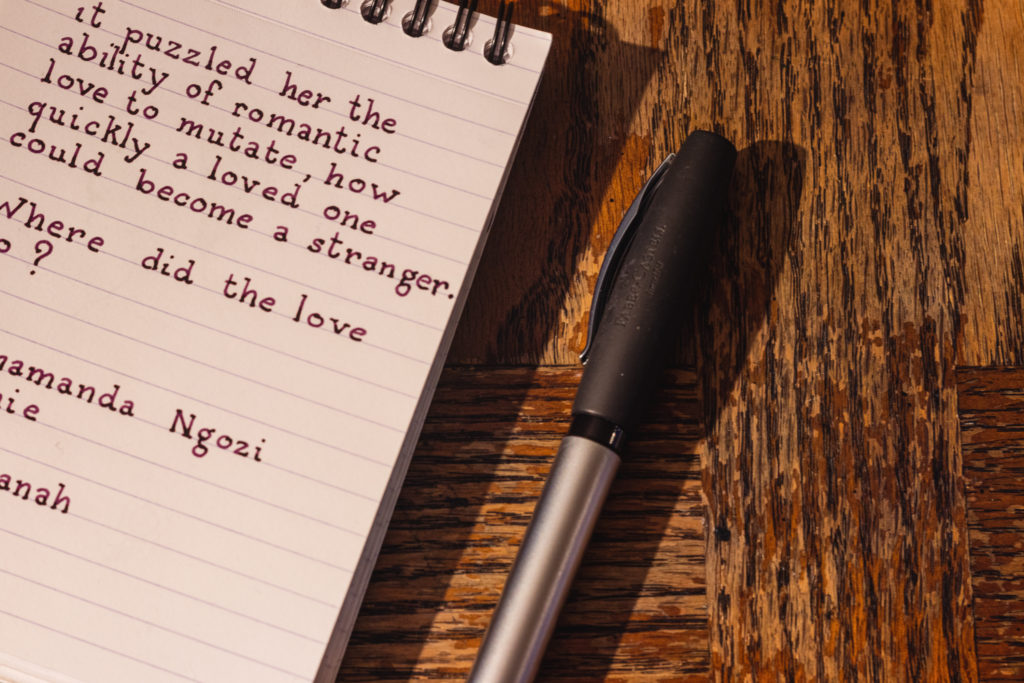 it puzzled her the
ability of romantic
love to mutate, how
quickly a loved one
could become a stranger.
Where did the love
o?
amanda Ngozi
ie
anah